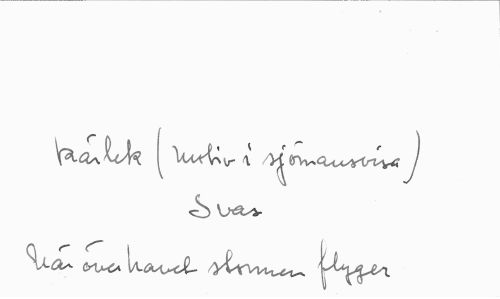 Kärlek (motiv i sjömansvisa)
Svas
När över havet stormen flyger